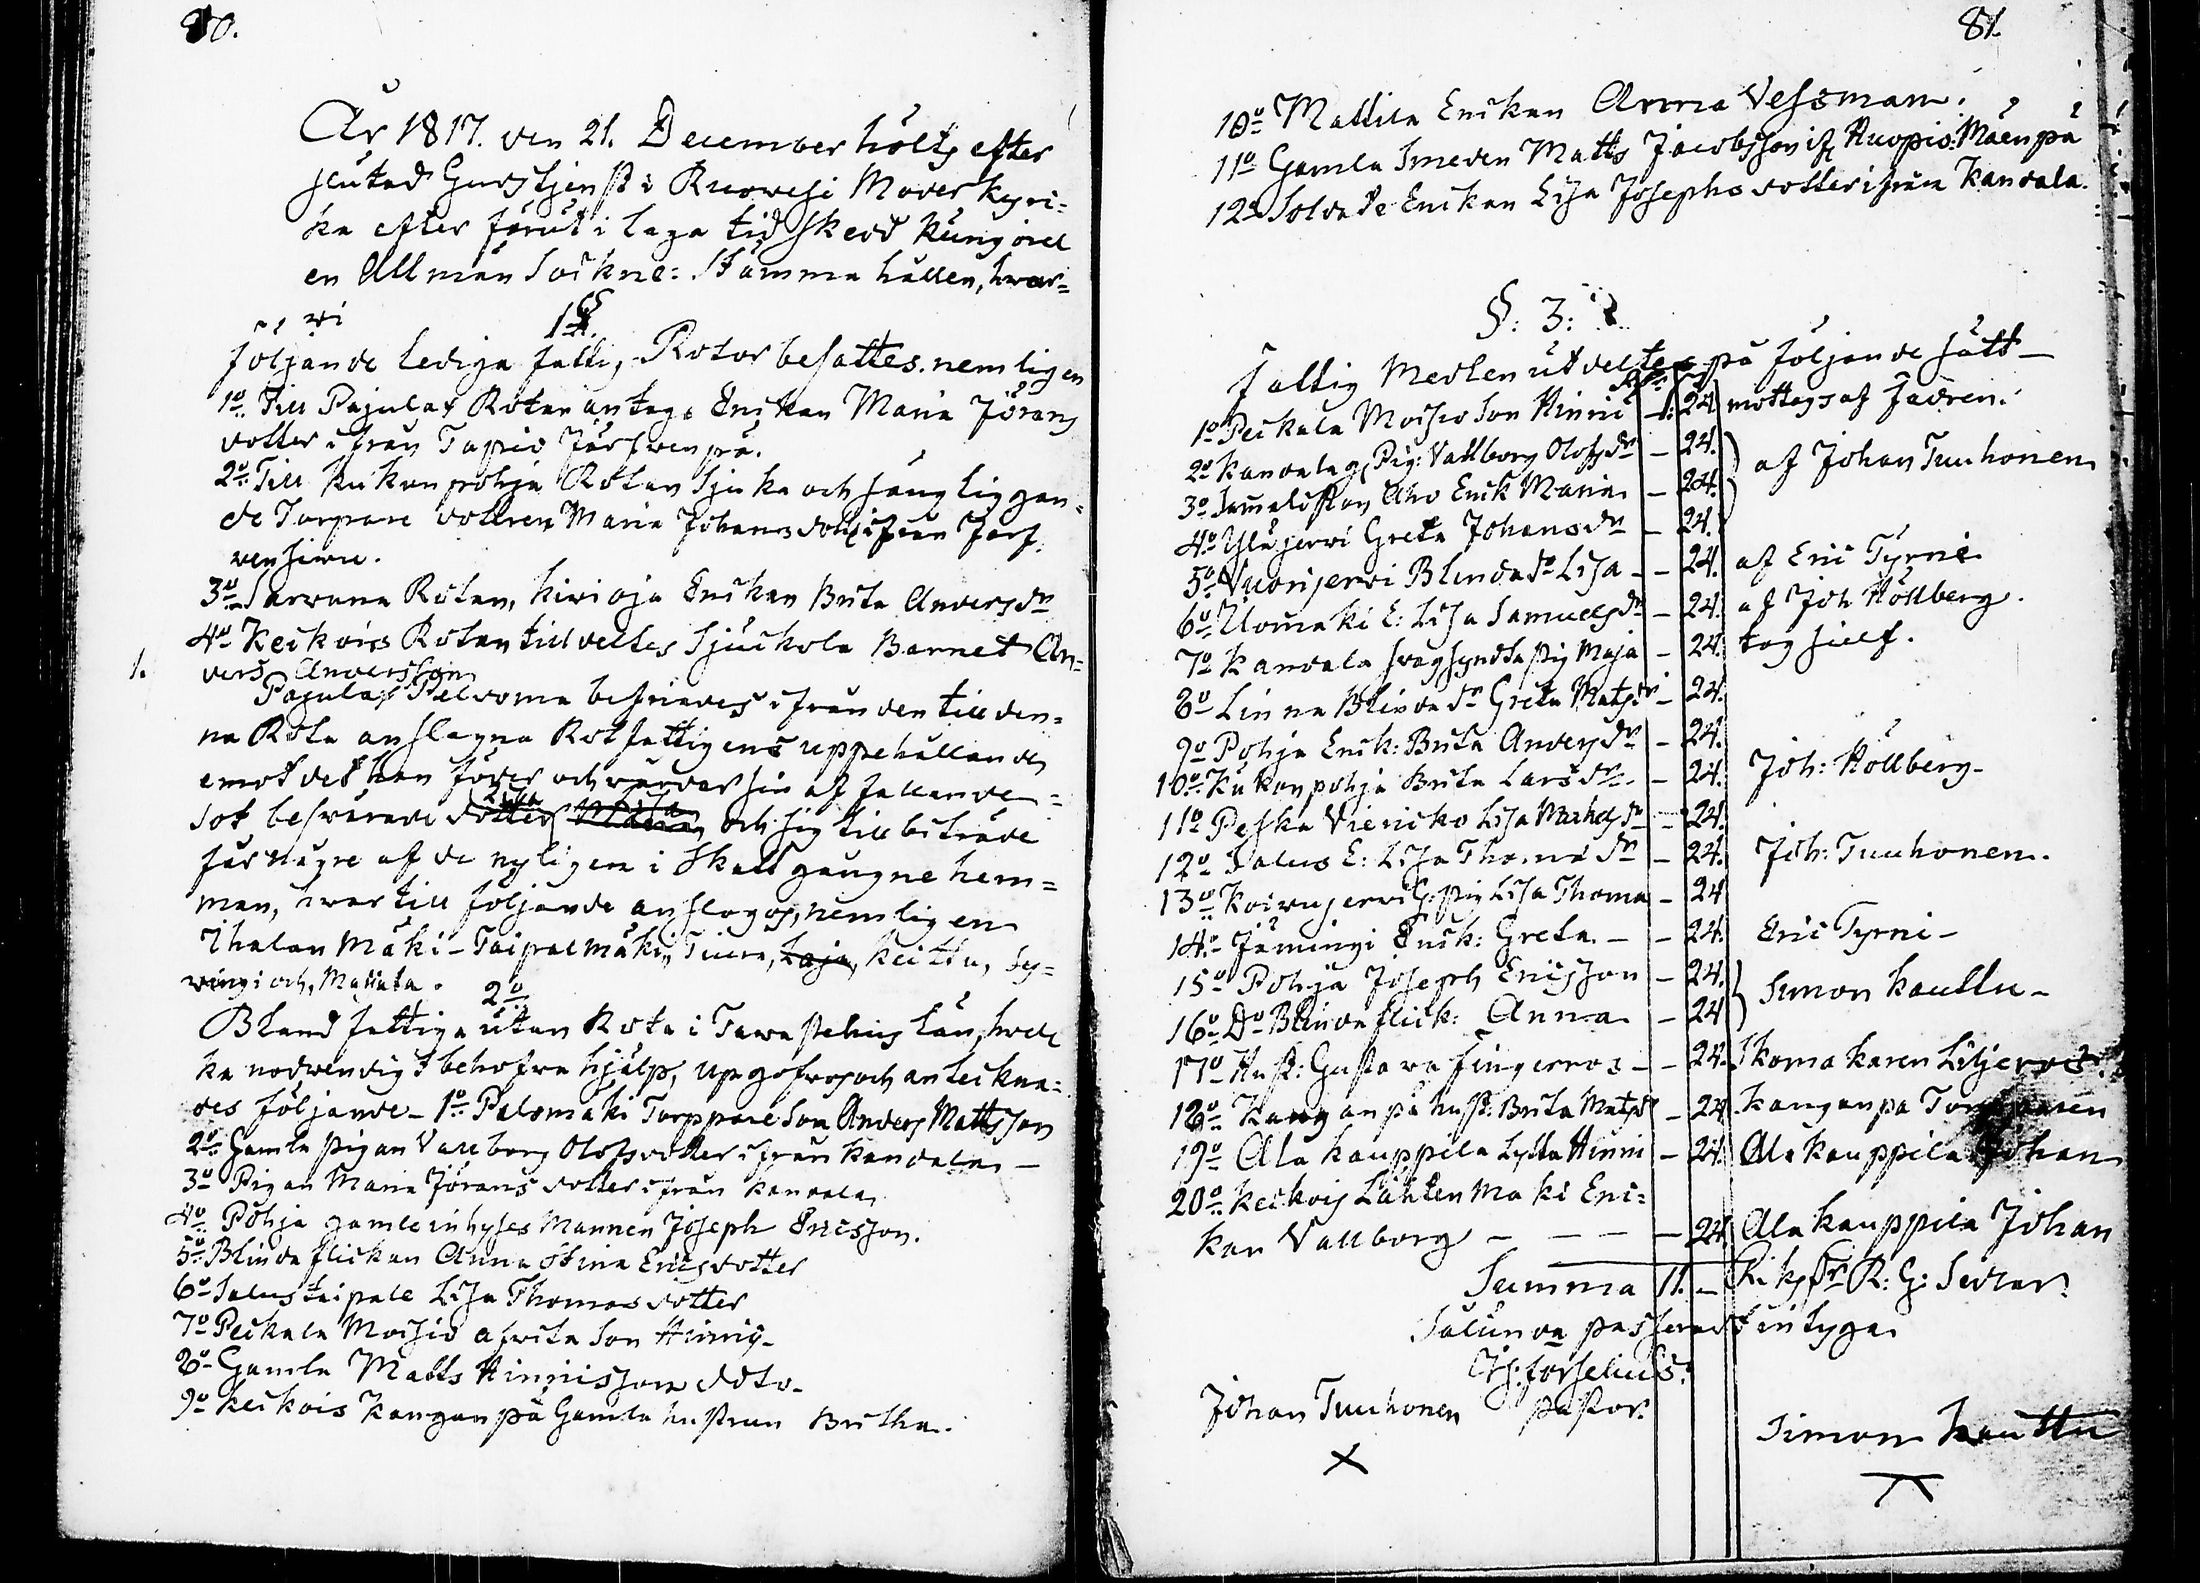 80.
År 1817. den 21. December hölts efter
slutad Gudstjenst i Ruowesi Moder Kyrc=
ka efter förut i laga tid skedd Kungörel
en Allmän Sockne: Stämma hållen, hwar=
wi
1§.
följande lediga fattig Rotor besattes. nemligen
1o Till Pajulax Rotan antogs Enckan Maria Jörans
dotter ifrån Tapio Järfvenpä.
2o Till Kukonpohja Rotan Sjuka och sänglig gan=
de Torpare dottren Maria Johans dotter ifrån Jerf.
vensiwu.
3o Sarvana Rotan, Kivioja Enckan Brita Andersdr
4o Keckois Rotan tilldeltes Sjuckola Barnet An=
1. ders Andersson
Pajulax Peldoma befriades ifrån den till den=
na Rota anslagna Rotfattigens uppehållande
emot det han föder och vårdar sin af fallande=
sot beswärade dotter Lisa Maria och sig till biträde
får några af de nyligen i Skatt gångne hem=
man, hwartill följande anslogos, nemligen
Ihalan Mäki - Taipalmäki, Tiura, Laja, Keittu, Sy=
vingi och, Mattila.
2o
Bland fattiga utan Rota i Tawastehus län, hvil
ka nödvendigt behofva hjälp, upgofvos och anteckna=
des följande - 1o Palomäki Torppare Son Anders Mattsson
2o Gamla pigan Vallborg Olofsdotter ifrån Kandala -
3o Pigan Maria Jörans dotter ifrån Kandala
4o Pohja gamla inhyses Mannen Joseph Ericsson.
5o Blinda flickan Anna Stina Ericsdotter
6o Salustaipale Lisa Thomas dotter
7o Peckala Moisio afvita Son Hinric -
8o Gamla Matts Hinricsson dito -
9o Keckois Kanganpä Gamla hustrun Britha.
81.
10o Mattila Enckan Anna Vessman.
11o Gamla Smeden Matts Jacobsson if. Ruopis: Mäenpä
12o Solvade Enckan Lisa Josephs dotter ifrån Kandala.
§: 3:
Fattig Medlen utdeltes på följande sätt -
1o Peckala Moisio Son Hinric - 24. mottogs af fadren.
2o Kandala g. Pig: Vallborg Olofsdr - 24.
3o Aho Enck Maria - 24. af Johan Tuuhonen
4o Yläjerwi Greta Johansdr - 24.
5o Vuorijerwi Blinda dr Lisa - 24. af Eric Tyrni
6o Uomäki E: Lisa Samuelsdr - 24. af Joh Hollberg.
7o Kandala svagsynta Pig Maja - 24. tog sielf.
8o Linna Blinda dr Greta Matsdr - 24.
9o Pohja Enck: Brita Andersdr - 24.
10o Kukonpohja Brita Larsdr - 24. Joh: Hollberg -
11o Pekka Viericko Lisa Michelsdr - 24.
12o Salus E: Lisa Thomædr - 24. Joh: Tuuhonen.
13o Koivujerwi G: Pig Lisa Thoma - 24
14o Jämingi Enck: Greta - 24. Eric Tyrni -
15o Pohja Joseph Ericsson - 24.
16o Do Blinda flick: Anna - 24 Simon Kauttu -
17o Hust: Gustava Fingerroos - 24. Skomakaren Liljeroos
18o Kanganpä hust: Brita Matsdr - 24 Kanganpä Torpparen
19o Ala Kauppila Lytta Hinric - 24. Ala Kauppila Johan
20o Keckois Lähtenmäki Enc=
kan Vallborg - - - - 24 Ala Kauppila Johan
Summa 11. - R: G: Sedlar
Sålunda passerat intygar
Forselius.
Pastor.
Johan Tuuhonen
X
Simon Kauttu